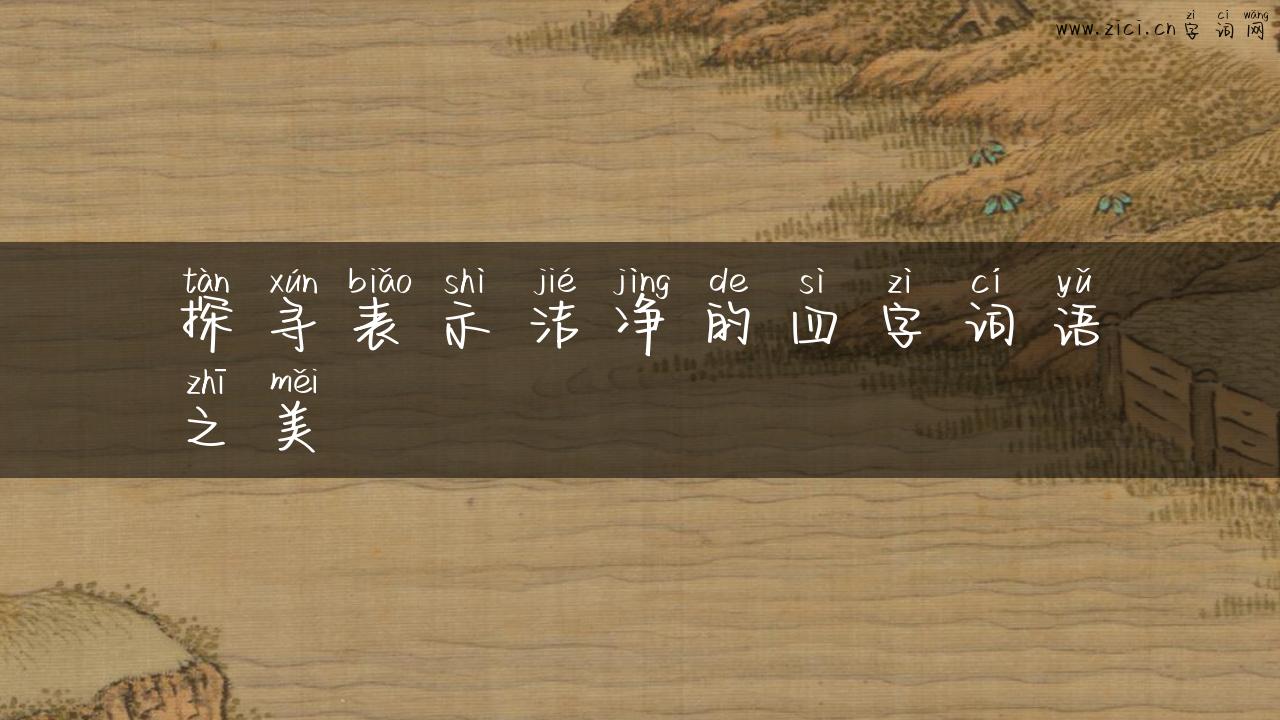 zì cí wǎng
www.zici.cn字词网
tàn xún biǎo shì jié jìng de sì zì cí yǔ
探寻表示洁净的四字词语
zhī měi
之美